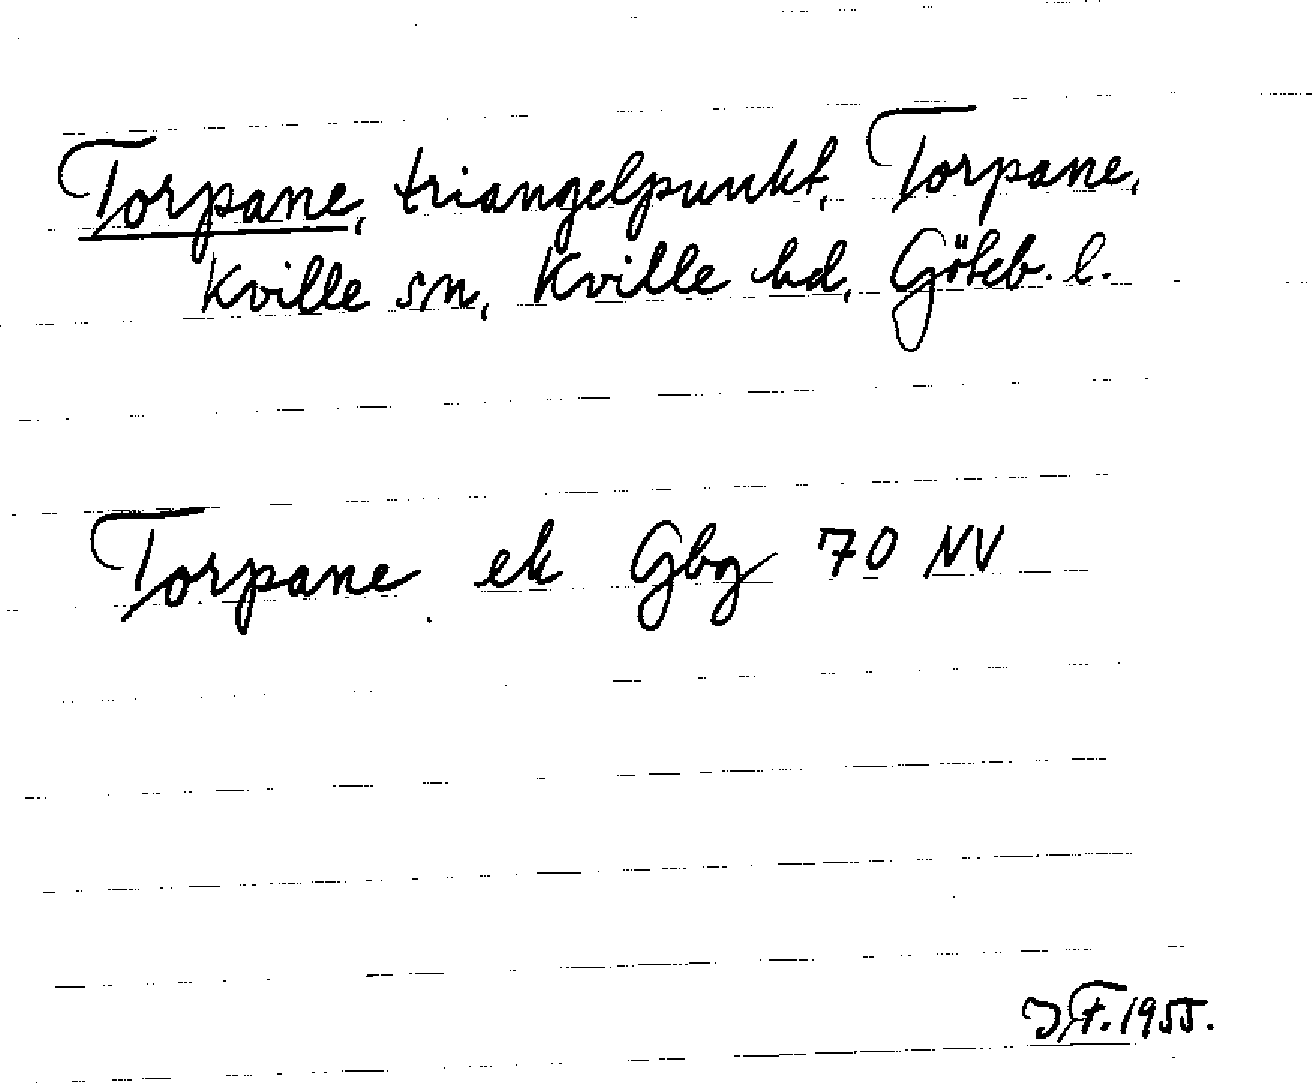 Torpane, triangelpunkt, Torpane,
Kville sn, Kville hd, Göteb. l.
Torpane ek Gbg 70 NV
JF. 1955.